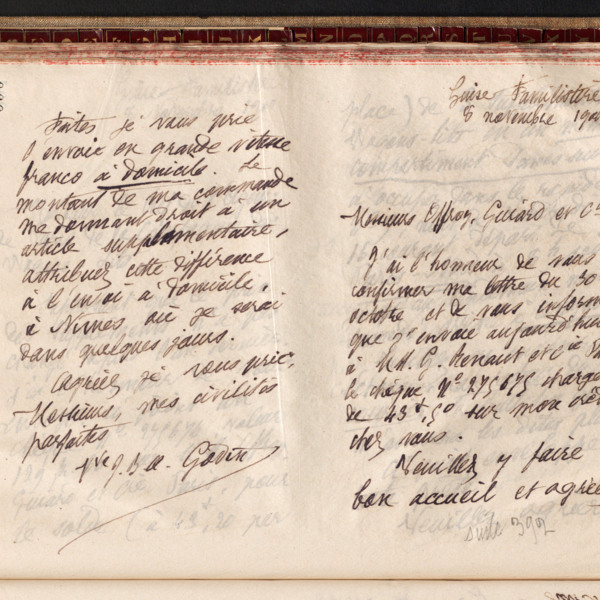 Faites je vous prie
l'envoi en grande vitesse
franco à domicile. Le
montant de ma commande
me donnant droit à un
article supplémentaire,
attribuez cette différence
à l'envoi à domicile,
à Nimes où je serai
dans quelques jours.
Agréez je vous prie,
Messieurs, mes civilités
parfaites
Vve J. B. A. Godin
Guise Familistère
8 novembre
Messieurs Effroy, Guiard et Cie
J'ai l'honneur de vous
confirmer ma lettre du 30
octobre et de vous inform
que j'envoie aujourd'hui
à M.M. G. Renaut et Cie
le chèque No 275675
de 43f,50 sur mon
chez vous.
Veuillez y faire
bon accueil et agrée
suite 392